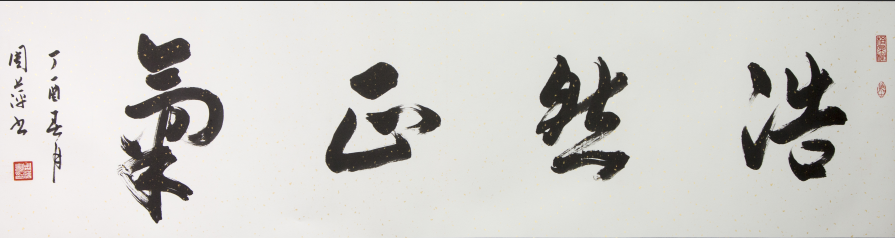 浩然正氣
丁酉春月
周萍书